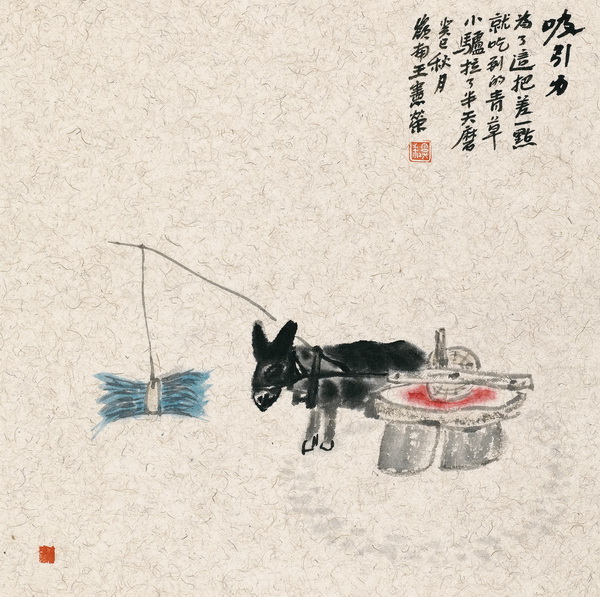 吸引力
為了這把差一點
就吃到的青草
小驢拉了半天磨
癸巳秋月
嶺南王憲榮